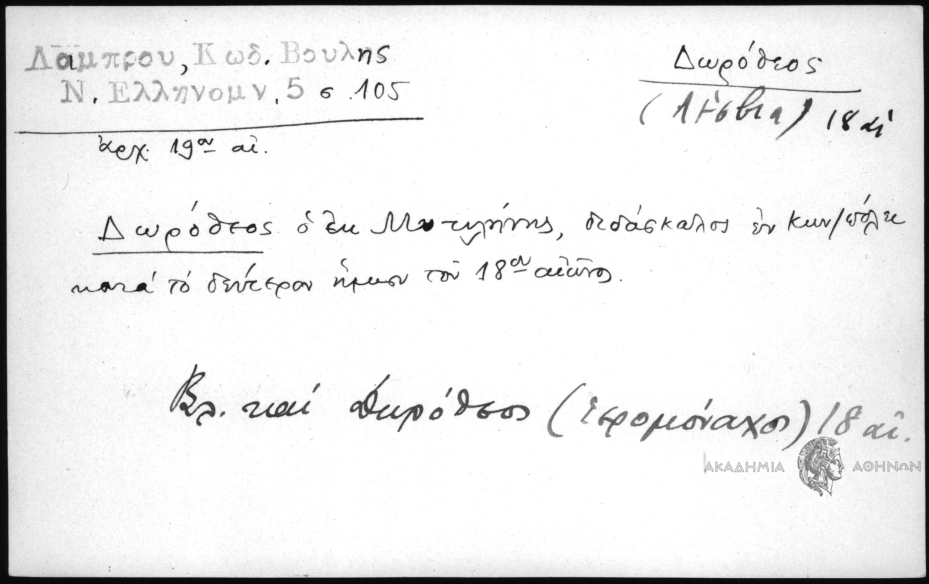 Λάμπρου, Κωδ. Βουλης
Ν. Ελληνομν. 5 σ .105
Δωρόθεος
(Λέσβια) 18 αἰ
ἀρχ. 19ου αἰ.
Δωρόθεος ὁ ἐκ Μυτιλήνης, διδάσκαλος ἐν Κων/πόλει
κατά τό δεύτερον ἥμισυ τοῦ 18ου αἰῶνος.
Βλ. καί Δωρόθεος (ἱερομόναχος) 18 αἰ.
ΑΚΑΔΗΜΙΑ ΑΘΗΝΩΝ